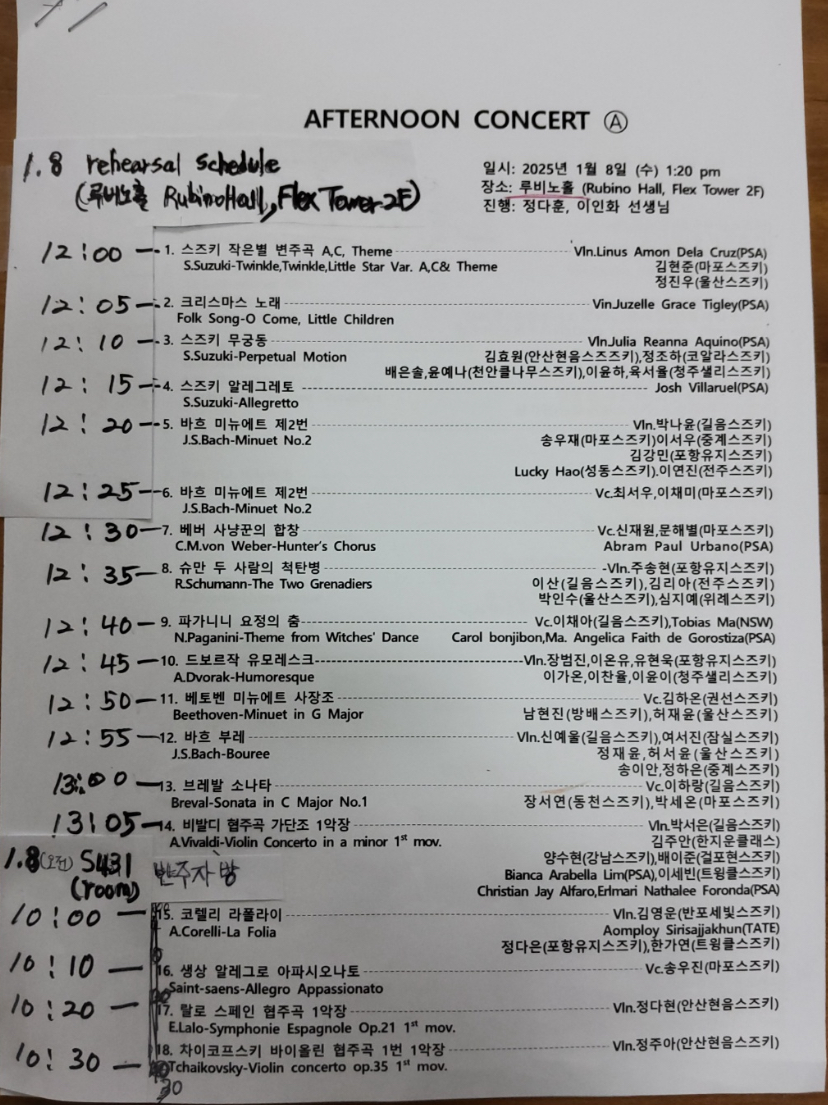 AFTERNOON CONCERT Ⓐ
1.8 rehearsal schedule
(루비노홀 RubinoHall, Flex Tower 2F)
일시: 2025년 1월 8일 (수) 1:20 pm
장소: 루비노홀 (Rubino Hall, Flex Tower 2F)
진행: 정다훈, 이인화 선생님
12:00 1. 스즈키 작은별 변주곡 A,C, Theme Vln.Linus Amon Dela Cruz(PSA)
S.Suzuki-Twinkle,Twinkle,Little Star Var. A,C& Theme 김현준(마포스즈키)
정진우(울산스즈키)
12:05 2. 크리스마스 노래 Vin.Juzelle Grace Tigley(PSA)
Folk Song-O Come, Little Children
12:10 3. 스즈키 무궁동 Vln.Julia Reanna Aquino(PSA)
S.Suzuki-Perpetual Motion 김효원(안산현음스즈즈키),정조하(코알라스즈키)
배은솔,윤예나(천안클나무스즈키),이윤하,육서율(청주샐리스즈키)
12:15 4. 스즈키 알레그레토 Josh Villaruel(PSA)
S.Suzuki-Allegretto
12:20 5. 바흐 미뉴에트 제2번 Vln.박나윤(길음스즈키)
J.S.Bach-Minuet No.2 송우재(마포스즈키)이서우(중계스즈키)
김강민(포항유지스즈키)
Lucky Hao(성동스즈키).이연진(전주스즈키)
12:25 6. 바흐 미뉴에트 제2번 Vc.최서우,이채미(마포스즈키)
J.S.Bach-Minuet No.2
12:30 7. 베버 사냥꾼의 합창 Vc.신재원,문해별(마포스즈키)
C.M.von Weber-Hunter's Chorus Abram Paul Urbano(PSA)
12:35 8. 슈만 두 사람의 척탄병 -Vln.주송현(포항유지스즈키)
R.Schumann-The Two Grenadiers 이산(길음스즈키),김리아(전주스즈키)
박인수(울산스즈키),심지예(위례스즈키)
12:40 9. 파가니니 요정의 춤 Vc.이채아(길음스즈키),Tobias Ma(NSW)
N.Paganini-Theme from Witches' Dance Carol bonjibon,Ma. Angelica Faith de Gorostiza(PSA)
12:45 10. 드보르작 유모레스크 Vln.장범진,이온유,유현욱(포항유지스즈키)
A.Dvorak-Humoresque 이가온,이찬율,이윤이(청주샐리스즈키)
12:50 11. 베토벤 미뉴에트 사장조 Vc.김하온(권선스즈키)
Beethoven-Minuet in G Major 남현진(방배스즈키),허재윤(울산스즈키)
12:55 12. 바흐 부레 Vln.신예울(길음스즈키),여서진(잠실스즈키)
J.S.Bach-Bouree 정재윤,허서윤(울산스즈키)
송이안,정하은(중계스즈키)
13:00 13. 브레발 소나타 Vc.이하랑(길음스즈키)
Breval-Sonata in C Major No.1 장서연(동천스즈키),박세온(마포스즈키)
13:05 14. 비발디 협주곡 가단조 1악장 Vln.박서은(길음스즈키)
A.Vivaldi-Violin Concerto in a minor 1st mov. 김주안(한지운클래스)
양수현(강남스즈키),배이준(걸포현스즈키)
Bianca Arabella Lim(PSA),이세빈(트윙클스즈키)
Christian Jay Alfaro,Erlmari Nathalee Foronda(PSA)
1.8(오전) S431 반주자 방
(room)
10:00 15. 코렐리 라폴라이 Vln.김영운(반포세빛스즈키)
A.Corelli-La Folia Aomploy Sirisajjakhun(TATE)
정다은(포항유지스즈키),한가연(트윙클스즈키)
10:10 16. 생상 알레그로 아파시오나토 Vc.송우진(마포스즈키)
Saint-saens-Allegro Appassionato
10:20 17. 랄로 스페인 협주곡 1악장 Vln.정다현(안산현음스즈키)
E.Lalo-Symphonie Espagnole Op.21 1st mov.
10:30 18. 차이코프스키 바이올린 협주곡 1번 1악장 Vln.정주아(안산현음스즈키)
Tchaikovsky-Violin concerto op.35 1st mov.
30